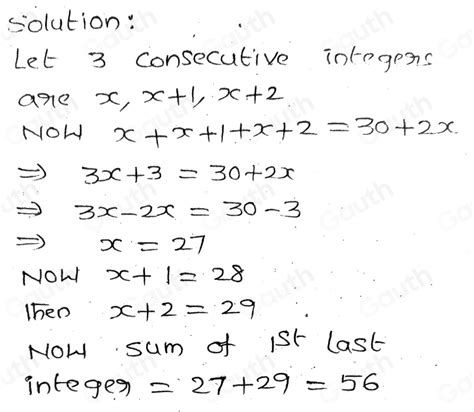 Solution:
Let 3 consecutive integers
are x, x+1, x+2
Now x+x+1+x+2 = 30+2x.
⇒ 3x+3 = 30+2x
⇒ 3x-2x = 30-3
⇒ x = 27
Now x+1 = 28
Then x+2 = 29
Now sum of 1st last
integer = 27+29 = 56